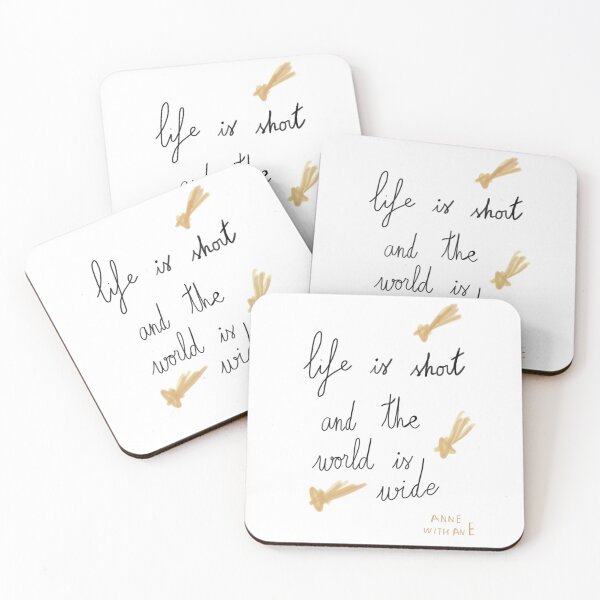 life is short
and the
life is short
and the
world is
life is short
and the
world is
life is short
and the
world is
wide
ANNE
WITH AN E